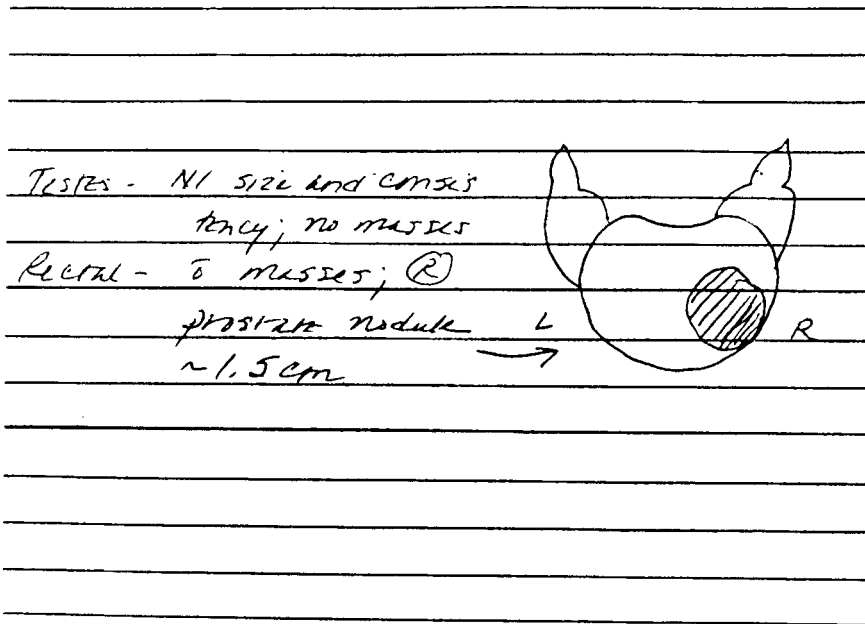 Testes - Nl size and consis
tency; no masses
Rectal - ō masses; Ⓡ
prostate nodule
~1.5 cm
L
R